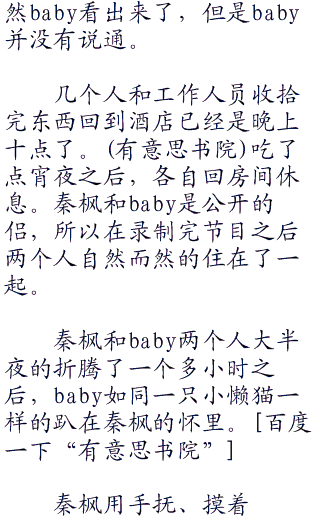 然baby看出来了，但是baby
并没有说通。
几个人和工作人员收拾
完东西回到酒店已经是晚上
十点了。(有意思书院)吃了
点宵夜之后，各自回房间休
息。秦枫和baby是公开的
侣，所以在录制完节目之后
两个人自然而然的住在了一
起。
秦枫和baby两个人大半
夜的折腾了一个多小时之
后，baby如同一只小懒猫一
样的趴在秦枫的怀里。[百度
一下“有意思书院”]
秦枫用手抚、摸着